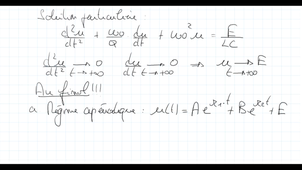 Solution particulière :
d²u/dt² + ω₀/Q du/dt + ω₀² u = E/LC
d²u/dt² → 0 t→+∞ du/dt → 0 t→+∞ ⇒ u → E t→+∞
Au final !!!
a Régime apériodique : u(t) = A e^{r₊t} + B e^{r₋t} + E